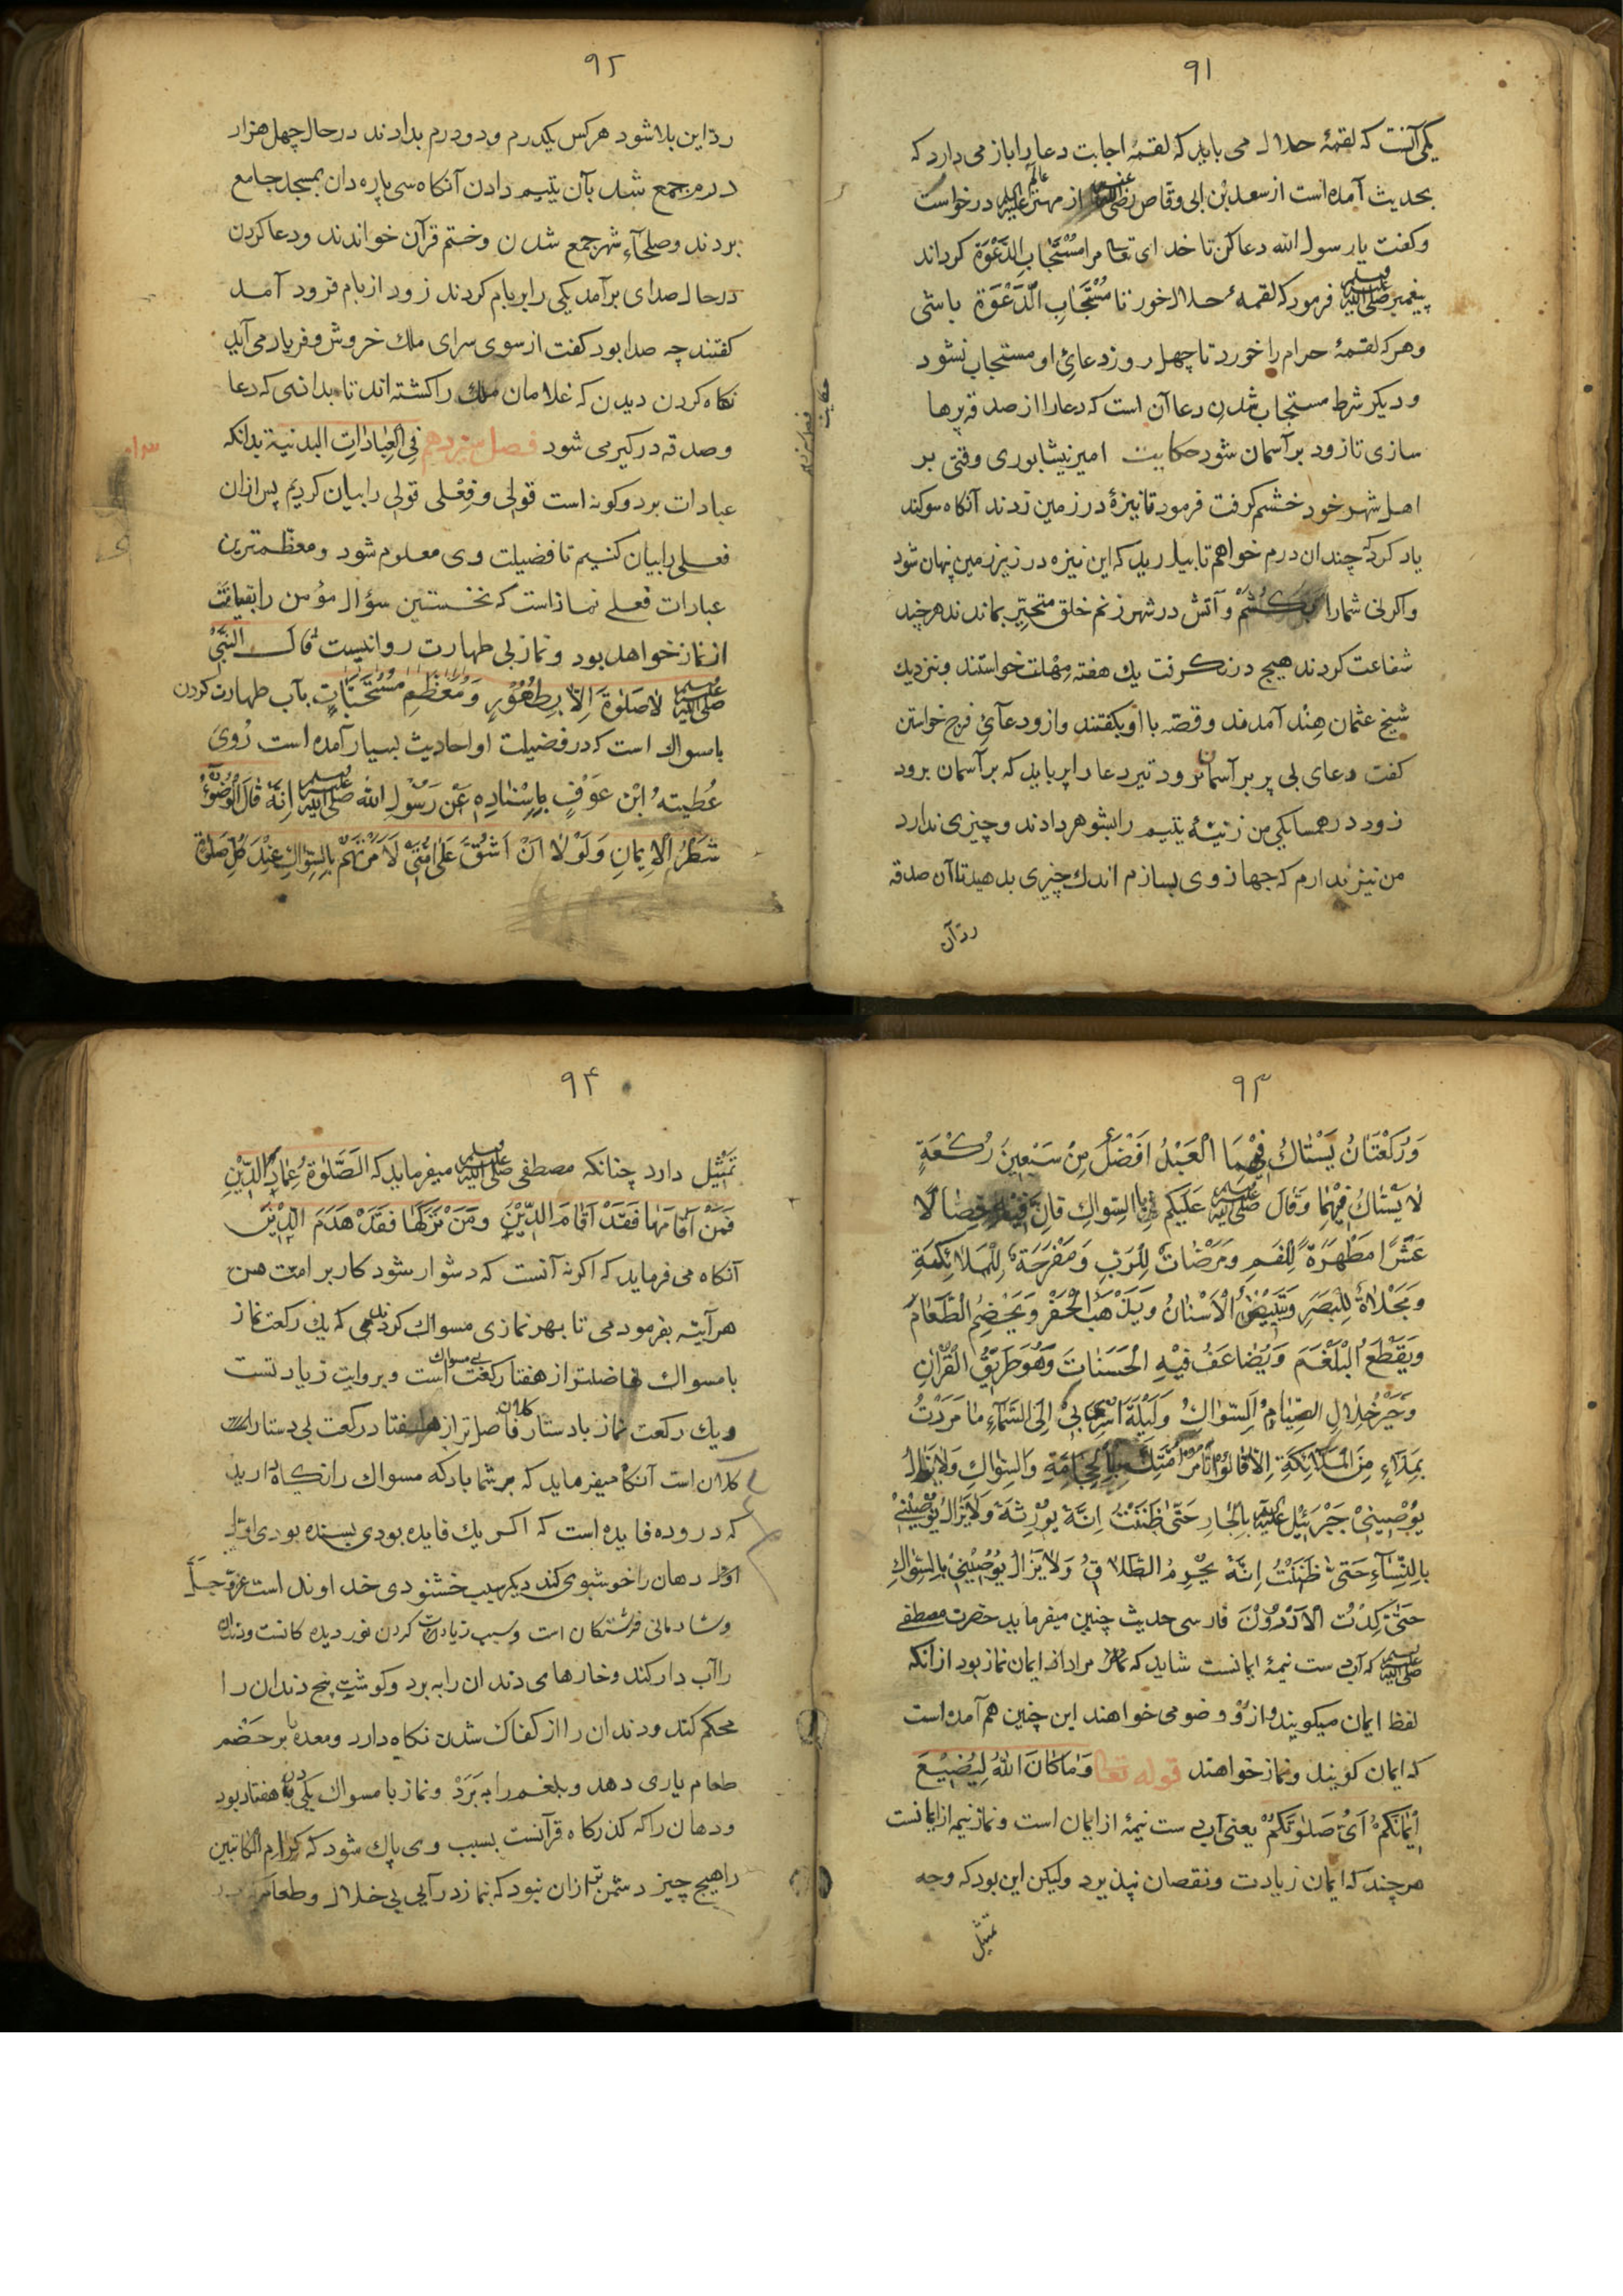 ۹۱
یکی آنست که لقمهٔ حلال می باید که لقمه اجابت دعا را باز می دارد که
بحدیث آمده است از سعد بن ابی وقاص رضی از مهتر عالم درخواست
و گفت یا رسول الله دعا کن تا خدای تعا مرا مُسْتَجَابِ الدَّعْوَة کرداند
پیغمبر صلی الله علیه وسلم فرمود که لقمهٔ حلال خور تا مُسْتَجَابِ الدَّعْوَة باشی
و هر که لقمهٔ حرام را خورد تا چهل روز دعائ او مستجاب نشود
و دیکر شرط مستجاب شدن دعا آن است که دعا را از صدقه پرها
سازی تا زود بر آسمان شود حکایت امیر نیشابوری وقتی بر
اهل شهر خود خشم کرفت فرمود تا نیزهٔ در زمین زدند آنکاه سوکند
یاد کرد که چندان درم خواهم تا بیارید که این نیزه در زیر زمین پنهان شود
و اکر نی شمارا بکُشَم و آتش در شهر زنم خلق متحیّر بماندند هرچند
شفاعت کردند هیچ در نکرفت یك هفته مهلت خواستند و بنزدیك
شیخ عثمان هِنْد آمدند و قصّه با او بکفتند و ازو دعآئ فرج خواستن
کفت دعای بی پر بر آسمان نرود تیر دعا را پر باید که بر آسمان برود
زود در همسایکی من زنیست یتیم را بشوهر دادند و چیزی ندارد
من نیز ندارم که جهاز وی بسازم اندك چیزی بدهید تا آن صدقه
رد آن
حکایت
۹۲
رد این بلا شود هرکس یکدرم و دو درم بدادند در حال چهل هزار
درم جمع شد بآن یتیم دادن آنکاه سی پاره دان بمسجد جامع
بردند و صلحآء شهر جمع شدن و ختم قرآن خواندند و دعا کردن
در حال صدای برآمد یکی را بر بام کردند زود از بام فرود آمد
کفتند چه صدا بود کفت از سوی سرای ملك خروش و فریاد می آید
نکاه کردن دیدن که غلامان ملك را کشته اند تا بدانی که دعا
و صدقه درکیر می شود فصل سیزدهم فِی الْعِبَادَاتِ البدنیة بدانکه
عبادات بر دو کونه است قولی و فِعْلی قولی را بیان کردیم پس ازان
فعلی را بیان کنیم تا فضیلت وی معلوم شود و معظّم ترین
عبادات فعلی نماز است که نخستین سؤال مؤمن را بقیامت
از نماز خواهد بود و نماز بی طهارت روا نیست قَالَ النَّبِیْ
صلی الله علیه وسلم لَا صَلٰوةَ اِلَّا بِطُهُوْرٍ وَ مُعَظَّمِ مُسْتَحَبَّاتٍ بآب طهارت کردن
با مسواك است که در فضیلت او احادیث بسیار آمده است رُوِیَ
عُطیتهُ ابْن عَوْفٍ بِاِسْنَادِهِ عَنْ رَسُوْلِ الله صلی الله علیه وسلم اِنَّهُ قَالَ الْوُضُوْءُ
شَطْرُ الْاِیمَانِ وَلَوْلَا اَنْ اَشُقَّ عَلیٰ اُمَّتِیْ لَاَمَرْتُهُمْ بِالسِّوَاكِ عِنْدَ کُلِّ صَلٰوةٍ
۹۳
وَرَکْعَتَانُ یَسْتَاكُ فِیْهِمَا الْعَبْدُ اَفْضَلُ مِنْ سَبْعِیْنَ رَکْعَةٍ
لَا یَسْتَاكُ فِیْهِمَا وَقَالَ صلی الله علیه وسلم عَلَیْکُم بِالسِّوَاكِ فَاِنَّ فِیْهِ خِصَالًا
عَشْرًا مَطْهَرَةً لِلْفَمِ وَمَرْضَاتٌ لِلرَّبِ وَمَفْرَحَةٌ لِلْمَلَائِکَةِ
وَمَجْلَاةٌ لِلْبَصَرِ وَیَبْیَضُّ الْاَسْنَانُ وَیَذْهَبُ الْحَفْرَ وَیَهْضِمُ الطَّعَامَ
وَیَقْطَعُ الْبَلْغَمَ وَیُضَاعَفُ فِیْهِ الْحَسَنَاتَ وَهُوَ طَرِیْقُ الْقُرْآنِ
وَخَیْرُ خِلَالِ الصِّیَامِ السِّوَاكُ وَلَیْلَةَ اُسْرِیَ بِیْ اِلَی السَّمَآءِ مَا مَرَدْتُ
بِمَلَاءٍ مِنَ الْمَلَائِکَةِ اِلَّا قَالُوْا مُرْ اُمَّتِكَ بِالْحِجَامَةِ وَالسِّوَاكِ وَلَا یَزَالُ
یُوْصِیْنِیْ جَبْرَئِیْل علیه بِالْجَارِ حَتّٰی ظَنَنْتُ اِنَّهُ یُوْرِثُهُ وَلَا یَزَالُ یُوْصِیْنِیْ
بِالنِّسَآءِ حَتّٰی ظَنَنْتُ اِنَّهُ یُحَرِّمُ الطَّلَاقُ وَلَا یَزَالُ یُوْصِیْنِیْ بِالسِّوَاكِ
حَتّٰی کِدْتُ الْاَدْرَدُوْنَ فارسی حدیث چنین میفرماید حضرت مصطفی
صلی الله علیه وسلم که آب دست نیمهٔ ایمانست شاید که مراد از ایمان نماز بود ازانکه
لفظ ایمان میکویند و ازو وضو می خواهند این چنین هم آمده است
که ایمان کویند و نماز خواهند قوله تعا وَمَا کَانَ اللهُ لِیُضِیْعَ
اِیْمَانَکُمْ اَیْ صَلٰوتَکُمْ یعنی آب دست نیمهٔ از ایمان است و نماز نیمه از ایمانست
هرچند که ایمان زیادت و نقصان نپذیرد ولیکن این بود که وجه
تمثیل
۹۴
تمثیل دارد چنانکه مصطفی صلی الله علیه وسلم میفرماید که الصَّلٰوةُ عِمَادُ الدِّیْنِ
فَمَنْ اَقَامَهَا فَقَدْ اَقَامَ الدِّیْنَ وَمَنْ تَرَکَهَا فَقَدْ هَدَمَ الدِّیْنَ
آنکاه می فرماید که اکر نه آنست که دشوار شود کار بر امت من
هرآینه بفرمودمی تا بهر نمازی مسواك کردندی که یك رکعت نماز
با مسواك فاضلتر از هفتاد رکعت بی مسواك است و بروایت زیادتست
و یك رکعت نماز با دستار کلان فاضلتر از هفتاد رکعت بی دستار
کلان است آنکاه میفرماید که بر شما باد که مسواك را نکاه دارید
که درو ده فایده است که اکر یك فایده بودی بسنده بودی اوّل
اوّل دهان را خوشبوی کند دیکر سبب خشنودی خداوند است عزّ و جلّ
و شادمانی فرشتکان است و سبب زیادت کردن نور دیده کانست و دندان
را آب دار کند و خارهای دندان را به برد و کوشت بیخ دندان را
محکم کند و دندان را از کفاك شدن نکاه دارد و معده را بر حَضْم
طعام یاری دهد و بلغم را به بَرَدْ و نماز با مسواك یکی به هفتاد بود
و دهان را که کذرکاه قرآنست بسبب وی پاك شود که کرام الکاتبین
را هیچ چیز دشمن تر ازان نبود که بنماز درآیی بی خلال و طعام